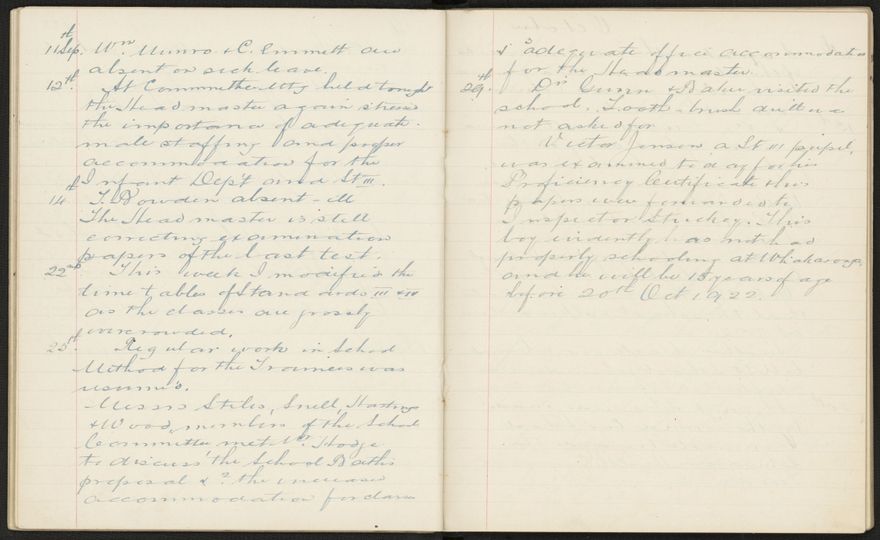 11th Sep. Wm. Munro & C. Emmett are
absent on sick leave.
12th. At Committee Mtg held tonight
the Headmaster again stress
the importance of adequate
male staffing and proper
accommodation for the
Infant Dep't and St III.
14th T. Bowden absent - ill
The Headmaster is still
correcting examination
papers of the last test.
22nd This week I modified the
time tables of Standards III & IV
as the classes are grossly
overcrowded.
25th. Regular work in School
Method for the Trainees was
resumed.
Messrs Stiles, Snell, Hastings
& Wood, members of the School
Committee met Mr. Hodge
to discuss the School Baths
proposal & ? the increased
accommodation for classes
& 3 adequate office accommodation
for the Headmaster.
29th. Drs Gunn & Baker visited the
school. Tooth-brush drill was
not asked for
Victor Jensen a St III pupil,
was examined today for
Proficiency Certificate & his
papers were forwarded to
Inspector Stuckey. This
boy evidently has not had
properly schooling at
and he will be 15 years of age
before 20th Oct 1922.